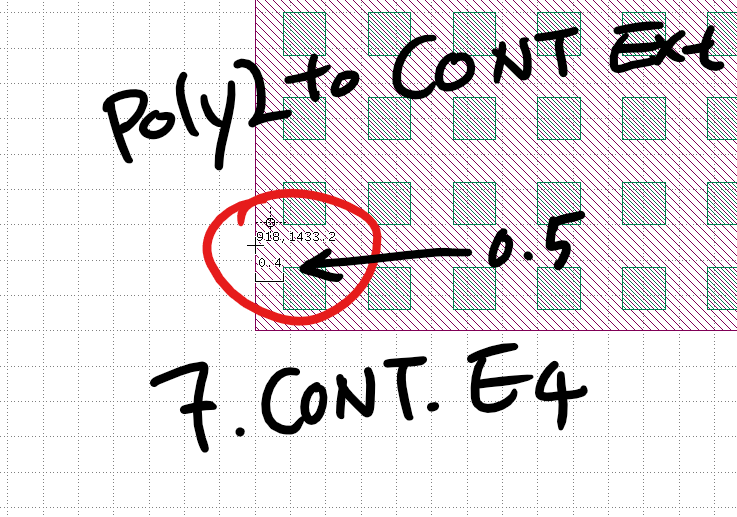 Poly2 to CONT Ext
918,1433.2
0.5
0.4
7. CONT. E4